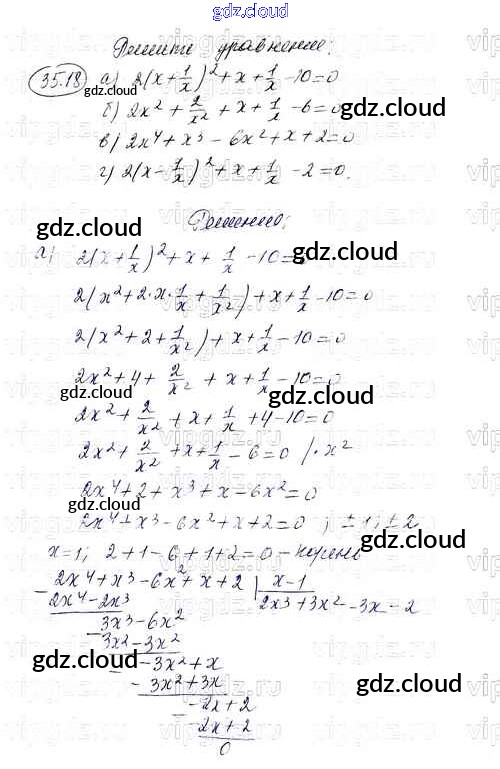 gdz.cloud
gdz.cloud
Решите уравнение:
35.18 а) 2(x+1/x)²+x+1/x-10=0
gdz.cloud
б) 2x²+2/x²+x+1/x-6=0
gdz.cloud
в) 2x⁴+x³-6x²+x+2=0
г) 2(x-1/x)²+x+1/x-2=0.
gdz.cloud
Решение:
gdz.cloud
а) 2(x+1/x)²+x+1/x-10=0
2(x²+2·x·1/x+1/x²)+x+1/x-10=0
2(x²+2+1/x²)+x+1/x-10=0
2x²+4+2/x²+x+1/x-10=0
gdz.cloud
gdz.cloud
2x²+2/x²+x+1/x+4-10=0
2x²+2/x²+x+1/x-6=0 /·x²
2x⁴+2+x³+x-6x²=0
gdz.cloud
2x⁴+x³-6x²+x+2=0; ±1; ±2
gdz.cloud
x=1; 2+1-6+1+2=0 - корень
-2x⁴+x³-6x²+x+2 | x-1
2x⁴-2x³ 2x³+3x²-3x-2
-3x³-6x²
3x²-3x²
gdz.cloud
- -3x²+x
-3x²+3x
gdz.cloud
- -2x+2
-2x+2
0